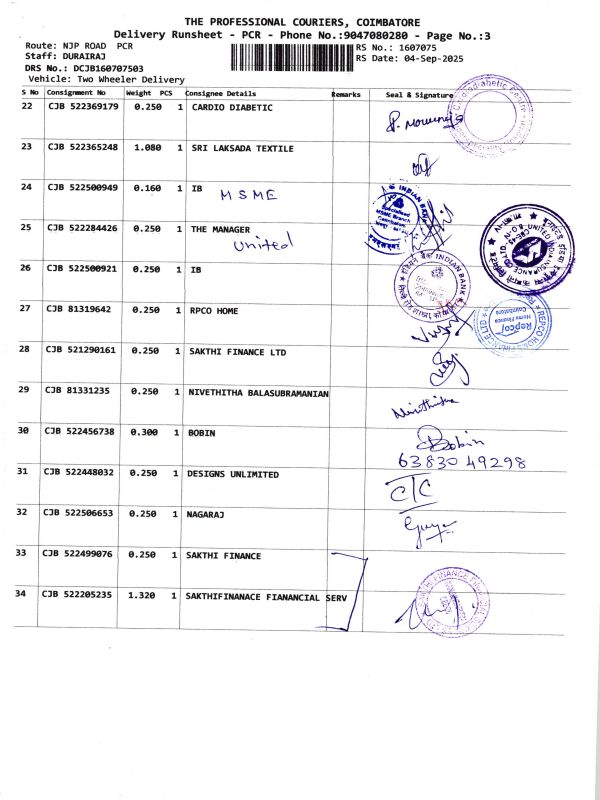 THE PROFESSIONAL COURIERS, COIMBATORE
Delivery Runsheet - PCR - Phone No.:9047080280 - Page No.:3
Route: NJP ROAD PCR
RS No.: 1607075
Staff: DURAIRAJ
RS Date: 04-Sep-2025
DRS No.: DCJB160707503
Vehicle: Two Wheeler Delivery
S No Consignment No Weight PCS Consignee Details Remarks Seal & Signature
22 CJB 522369179 0.250 1 CARDIO DIABETIC
23 CJB 522365248 1.080 1 SRI LAKSADA TEXTILE
24 CJB 522500949 0.160 1 IB
MSME
INDIAN BANK
Specialised
MSME Branch
Coimbatore
25 CJB 522284426 0.250 1 THE MANAGER
United
UNITED INDIA INSURANCE CO
26 CJB 522500921 0.250 1 IB
INDIAN BANK
27 CJB 81319642 0.250 1 RPCO HOME
REPCO HOME FINANCE LTD
Repco
Home Finance
Coimbatore
28 CJB 521290161 0.250 1 SAKTHI FINANCE LTD
29 CJB 81331235 0.250 1 NIVETHITHA BALASUBRAMANIAN
Nivethitha
30 CJB 522456738 0.300 1 BOBIN
Bobin
63830 49298
31 CJB 522448032 0.250 1 DESIGNS UNLIMITED
C/C
32 CJB 522506653 0.250 1 NAGARAJ
33 CJB 522499076 0.250 1 SAKTHI FINANCE
34 CJB 522205235 1.320 1 SAKTHIFINANACE FIANANCIAL SERV